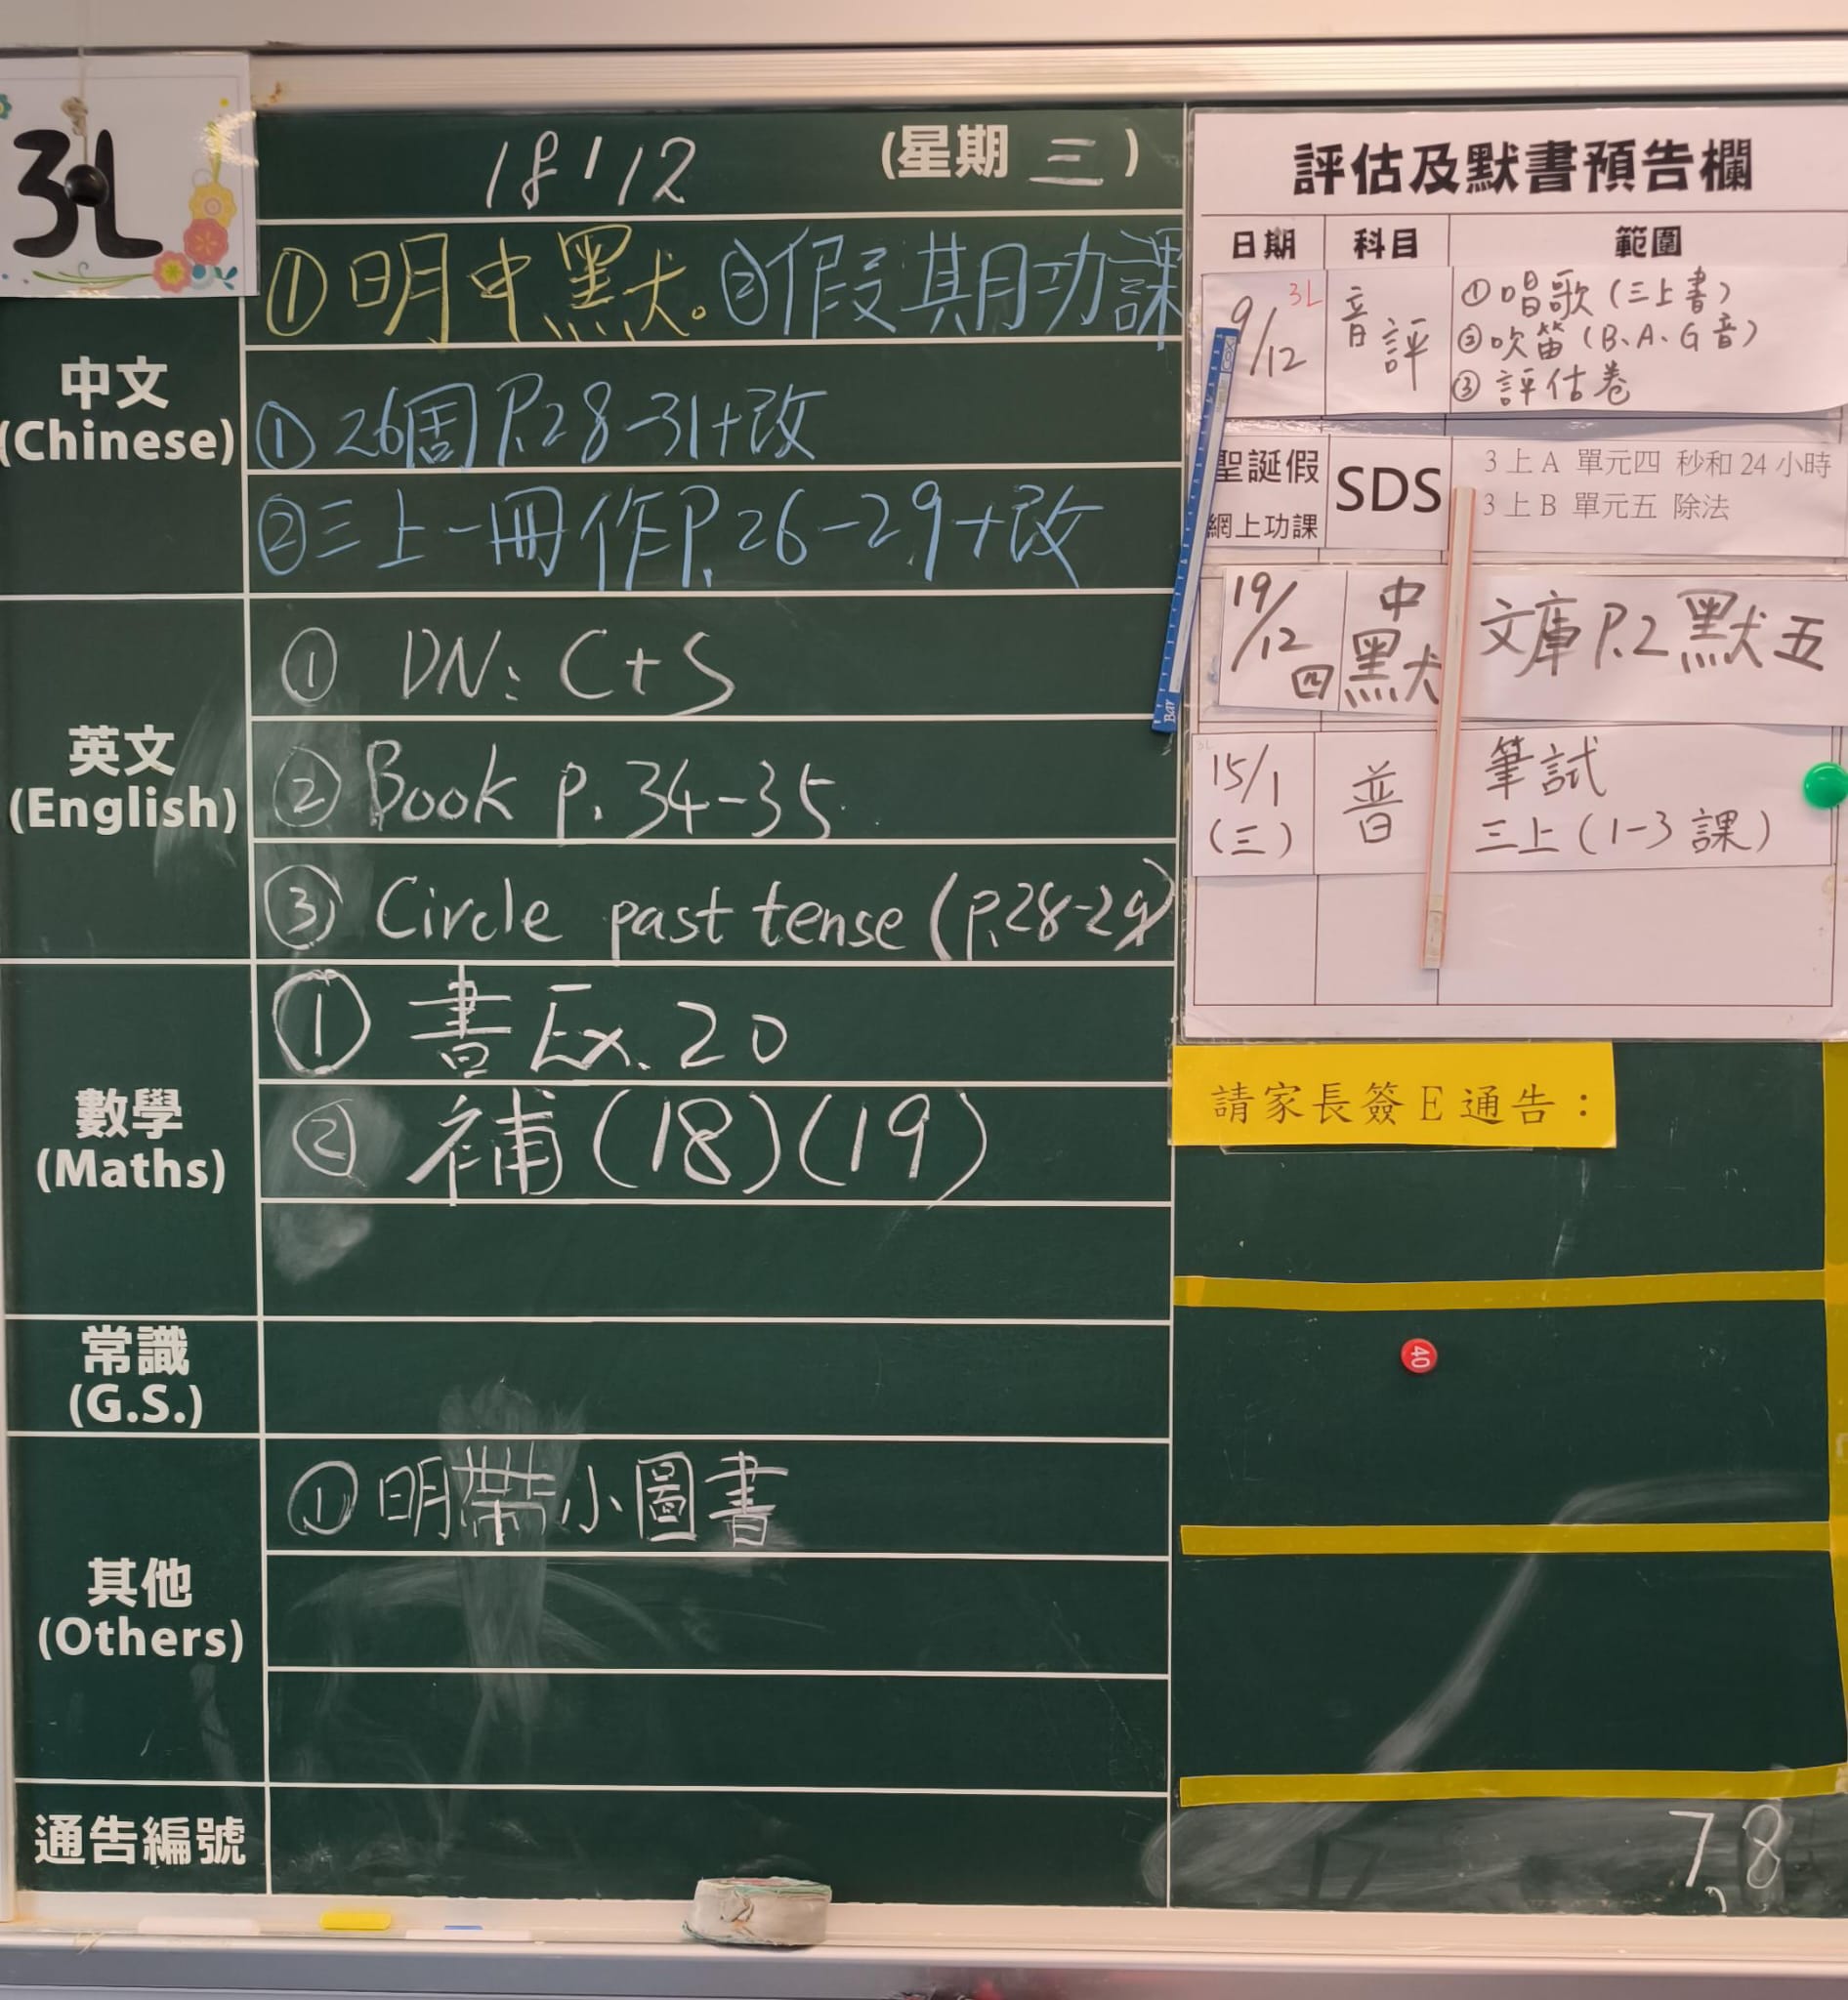 3L
18/12 (星期三)
①明中默。②假期功課
中文
(Chinese)
①26周P.28-31+改
②三上一冊作P.26-29+改
英文
(English)
① DN: C+S
② Book p.34-35.
③ Circle past tense (p.28-29)
數學
(Maths)
① 書 Ex. 20
② 補(18)(19)
常識
(G.S.)
其他
(Others)
①明帶小圖書
通告編號
評估及默書預告欄
日期 科目 範圍
9/12 3L 音評 ①唱歌(三上書)
②吹笛(B、A、G音)
③評估卷
聖誕假
網上功課
SDS
3上A 單元四 秒和24小時
3上B 單元五 除法
19/12 四 中默 文庫P.2 默五
15/1
(三)
普
筆試
三上(1-3課)
請家長簽E通告:
40
7,8